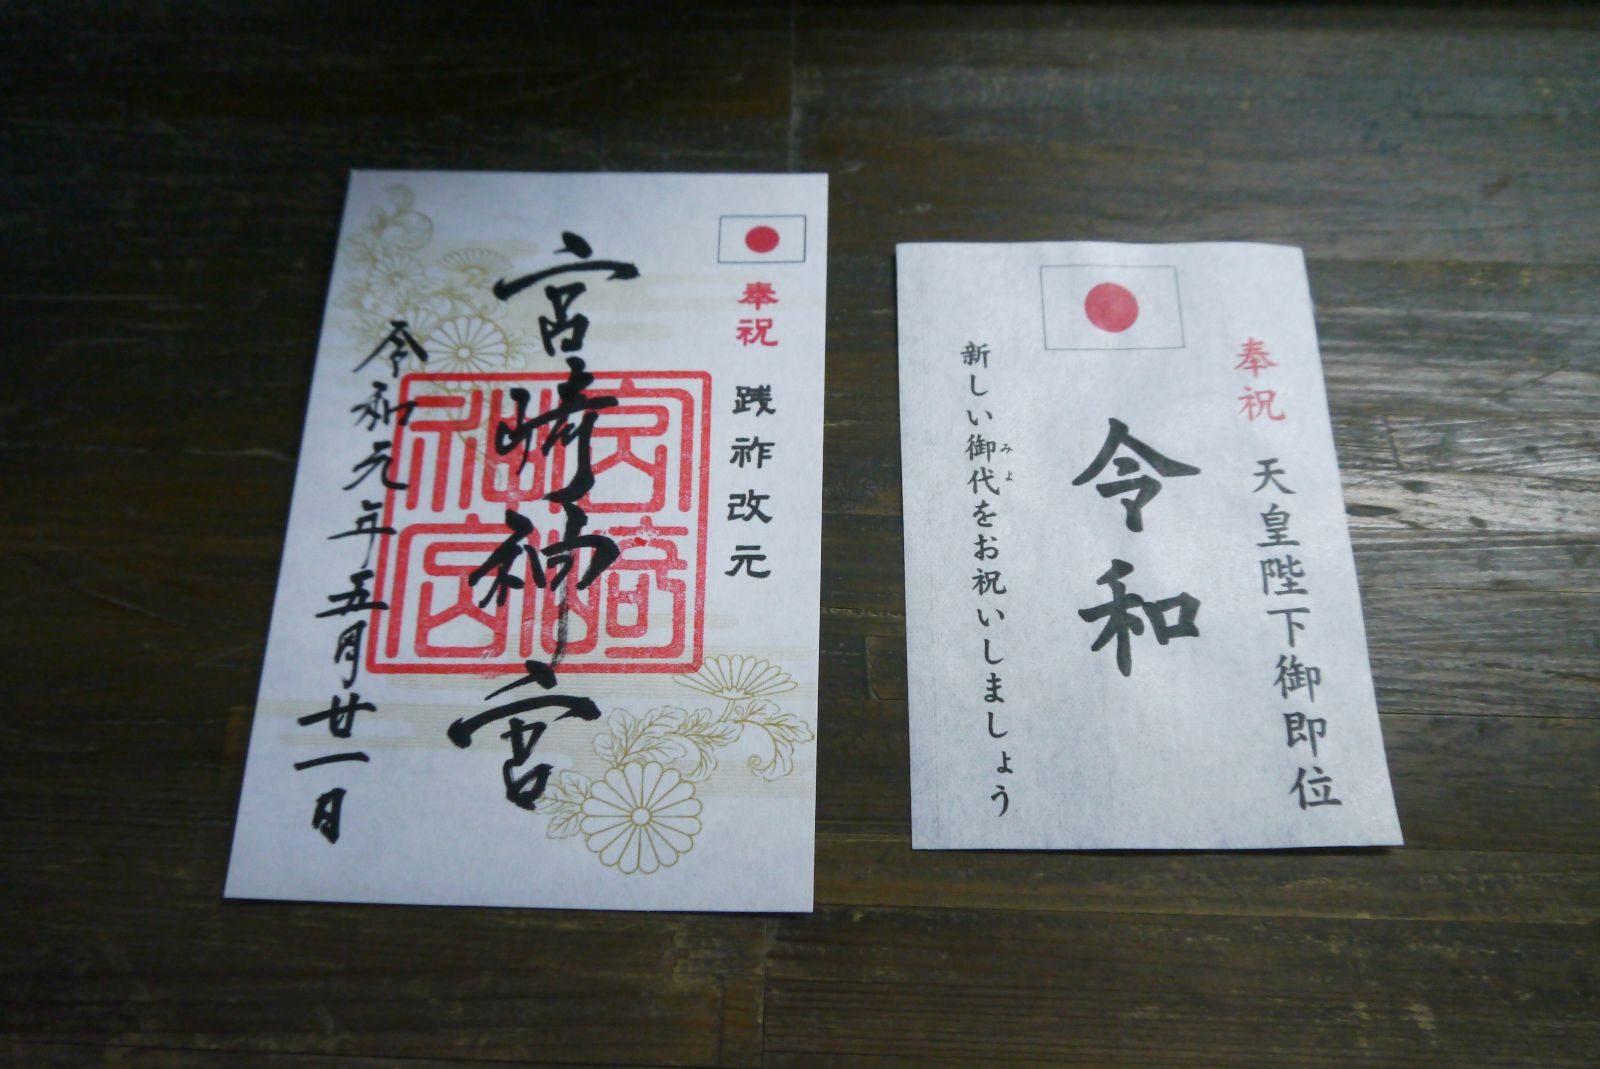 奉祝 践祚改元
宮崎神宮
令和元年五月廿一日
宮崎神宮
奉祝 天皇陛下御即位
令和
新しい御代をお祝いしましょう
みよ